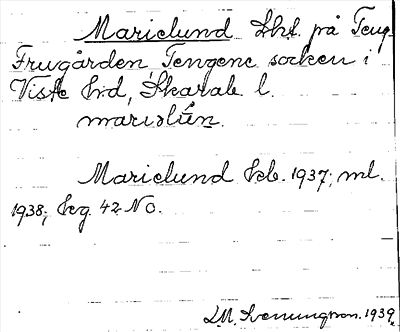 Marielund Lht. på Teng
Frugården, Tengene socken i
Viste hrd, Skarab. l.
mariəlún.
Marielund Ekb. 1937; ml.
1938; Seg. 42 NO.
L.M. Svenungsson. 1939.